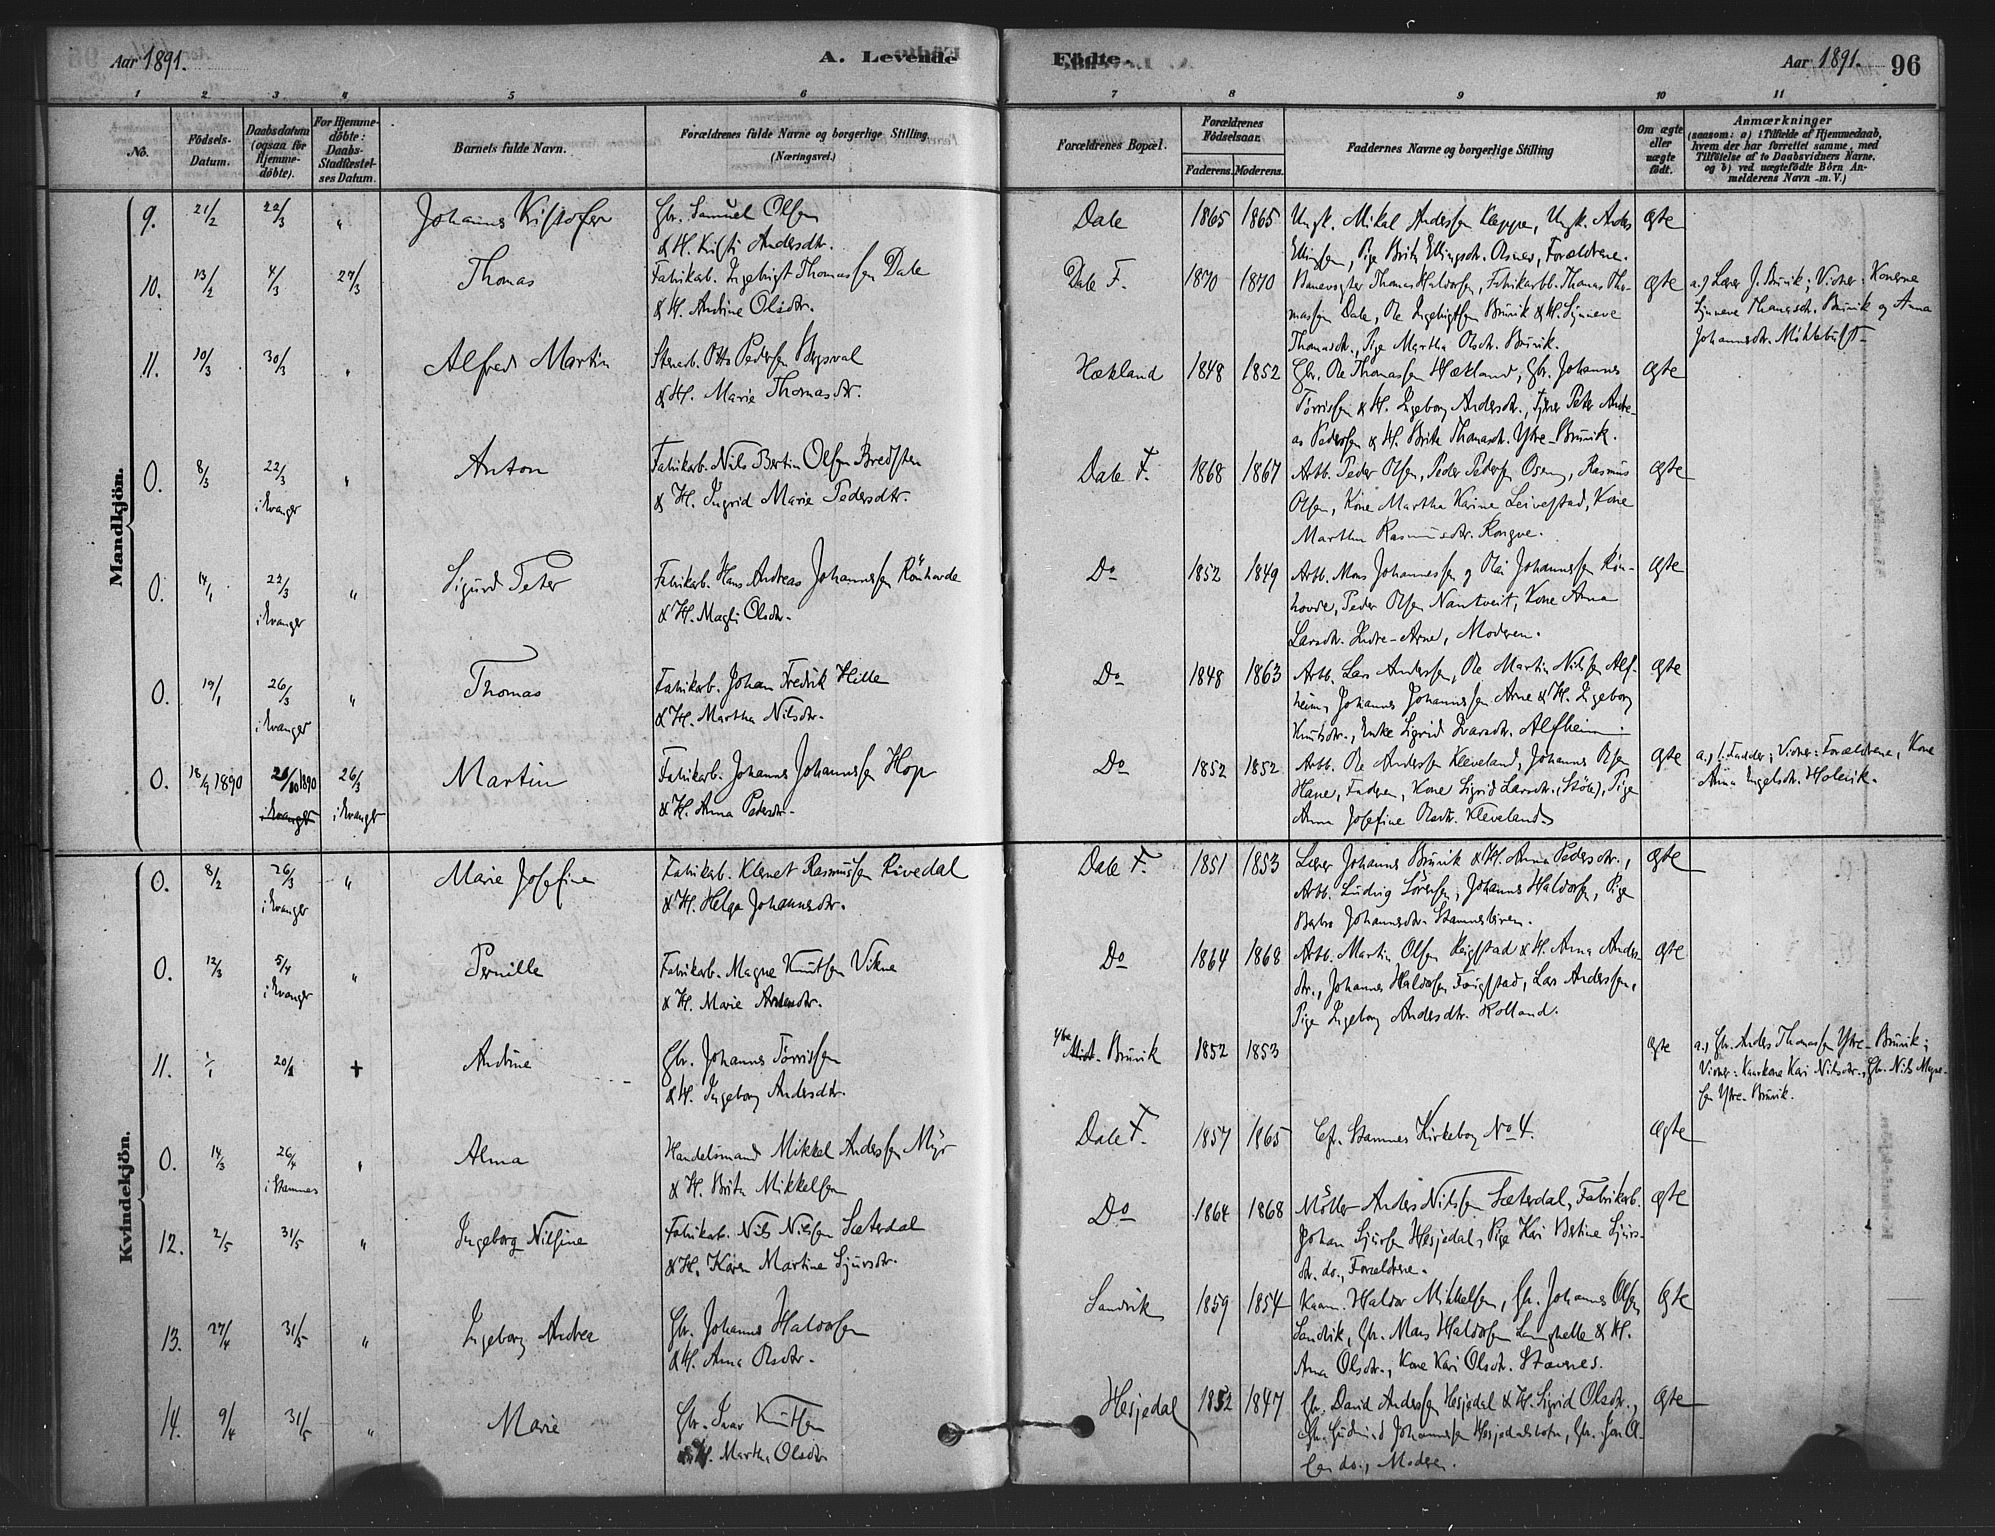 Aar 1891.
A. Levende
Födte.
Aar 1891.
96
1 2 3 4 5 6 7 8 9 10 11
No.
Födsels-
Datum.
Daabsdatum
(ogsaa för
Hjemme-
döbte).
For Hjemme-
döbte:
Daabs-
Stadfæstel-
ses Datum.
Barnets fulde Navn.
Forældrenes fulde Navne og borgerlige Stilling
(Næringsvei.)
Forældrenes Bopæl.
Forældrenes
Födselsaar.
Faderens. Moderens.
Faddernes Navne og borgerlige Stilling
Om ægte
eller
uægte
født.
Anmærkninger
(saasom: a) i Tilfælde af Hjemmedaab,
hvem der har forrettet samme, med
Tilföielse af to Daabsvidners Navne,
og b) ved uægtefödte Börn An-
melderens Navn m. V.)
Mandkjön.
9. 21/2 22/3 " Johannes Kristofer
Gbr. Samuel Olsen
& H. Kristi Andersdtr.
Dale 1865 1865
Ungk. Mikal Anderssen Kleppe, Ungk. Anders
Ellingsen, Pige Brita Ellingsdtr. Olsnes, Forældrene.
ægte
10. 13/2 4/3 27/3 Thomas
Fabrikarb. Ingebrigt Thomassen Dale
& H. Andrine Olsdtr.
Dale F. 1870 1870
Banevogter Thomas Haldorsen, Fabrikarbb. Thomas Tho-
massen Dale, Ole Ingebrigtsen Bruvik & H. Synneve
Thomasdtr., Pige Martha Olsdtr. Bruvik.
ægte
a.) Lærer J. Bruvik; Vidner: Konerne
Synneve Thomasdtr. Bruvik og Anna
Johannesdtr. Möhlebust
11. 10/3 30/3 " Alfred Martin
Stenarb. Otto Pedersen Bergsval
& H. Marie Thomasdtr.
Hækland 1848 1852
Gbr. Ole Thomassen Hækland, Gbr. Johannes
Törrissen & H. Ingeborg Andersdtr., Tjener Peter Andre-
as Pedersen & H. Brita Thomasdtr. Ytre-Bruvik.
ægte
0. 8/3 22/3 " Anton
i Evanger
Fabrikarb. Nils Bertin Olsen Bredsten
& H. Ingrid Marie Pedersdtr.
Dale F. 1868 1867
Arbb. Peder Olsen, Peder Pedersen Osen, Rasmus
Olsen, Kone Martha Karine Leivestad, Kone
Martha Rasmusdtr. Rongve.
ægte
0. 14/1 22/3 " Sigurd Peter
i Evanger
Fabrikarb. Hans Andreas Johannessen Rönhovde
& H. Magli Olsdtr.
Do 1852 1849
Arbb. Mons Johannessen og Olai Johannessen Rön-
hovde, Peder Olsen Namtveit, Kone Anna
Larsdtr. Indre-Arne, Moderen.
ægte
0. 19/1 26/3 " Thomas
i Evanger
Fabrikarb. Johan Fredrik Hille
& H. Martha Nilsdtr.
Do 1848 1863
Arbb. Lars Anderssen, Ole Martin Nilssen Alf-
heim, Johannes Johannessen Arne & H. Ingeborg
Knutsdtr., Enke Sigrid Ivarsdtr. Alfheim
ægte
0. 18/9 1890 26/10 1890 26/3 Martin
i Evanger i Evanger
Fabrikarb. Johannes Johannessen Hop
& H. Anna Pedersdtr.
Do 1852 1852
Arbb. Ole Anderssen Kleveland, Johannes Olsen
Hane, Faderen, Kone Sigrid Larsdtr. (Stöle), Pige
Anna Josefine Olsdtr. Kleveland
ægte
a.) l. Fadder; Vidner: Forældrene, Kone
Anna Engelsdtr. Holevik.
Kvindekjön.
0. 8/2 26/3 " Marie Josefine
i Evanger
Fabrikarb. Klemet Rasmussen Rivedal
& H. Helga Johannesdtr.
Dale F. 1851 1853
Lærer Johannes Bruvik & H. Anna Pedersdtr.,
Arbb. Ludvig Sörensen, Johannes Haldorsen, Pige
Barbro Johannesdtr. Stamnesleiren.
ægte
0. 12/3 5/4 " Pernille
i Evanger
Fabrikarb. Magne Knutsen Vikne
& H. Marie Arnesdtr.
Do 1864 1868
Arbb. Martin Olsen Reigstad & H. Anna Anders-
dtr., Johannes Haldorsen Toigstad, Lars Anderssen,
Pige Ingeborg Andersdtr. Rolland.
ægte
11. 1/1 20/1 + Andrine
Gbr. Johannes Törrissen
& H. Ingeborg Andersdtr.
Ytre
Midt-Bruvik 1852 1853
ægte
a.) Gbr. Anders Thomassen Ytre-Bruvik;
Vidner: Kaarkone Kari Nilsdtr., Gbr. Nils Magne-
sen Ytre-Bruvik.
0. 14/3 26/4 " Alma
i Stamnes
Handelsmand Mikkel Anderssen Myr
& H. Brita Mikkelsen
Dale F. 1857 1865
Cfr. Stamnes Kirkebog No 4.
ægte
12. 2/5 31/5 " Ingeborg Nilsine
Fabrikarb. Nils Nilssen Sæterdal
& H. Karen Martine Sjursdtr.
Do 1864 1868
Möller Anders Nilssen Sæterdal, Fabrikarb.
Johan Sjursen Hesjedal, Pige Kari Bertine Sjurs-
dtr. do., Forældrene.
ægte
13. 27/4 31/5 " Ingeborg Andrea
Gbr. Johannes Haldorsen
& H. Anna Olsdtr.
Sandvik 1859 1854
Kaarm. Haldor Mikkelsen, Gbr. Johannes Olsen
Sandvik, Gbr. Mons Haldorsen Langhelle & H.
Anna Olsdtr., Kone Kari Olsdtr. Stavnes.
ægte
14. 9/4 31/5 " Marie
Gbr. Ivar Knutsen
& H. Martha Olsdtr.
Hesjedal 1852 1847
Gbr. David Anderssen Hesjedal & H. Sigrid Olsdtr.,
Gbr. Gudmund Johannessen Hesjedalsbotn, Gbr. Jon Ol-
sen do., Moderen.
ægte